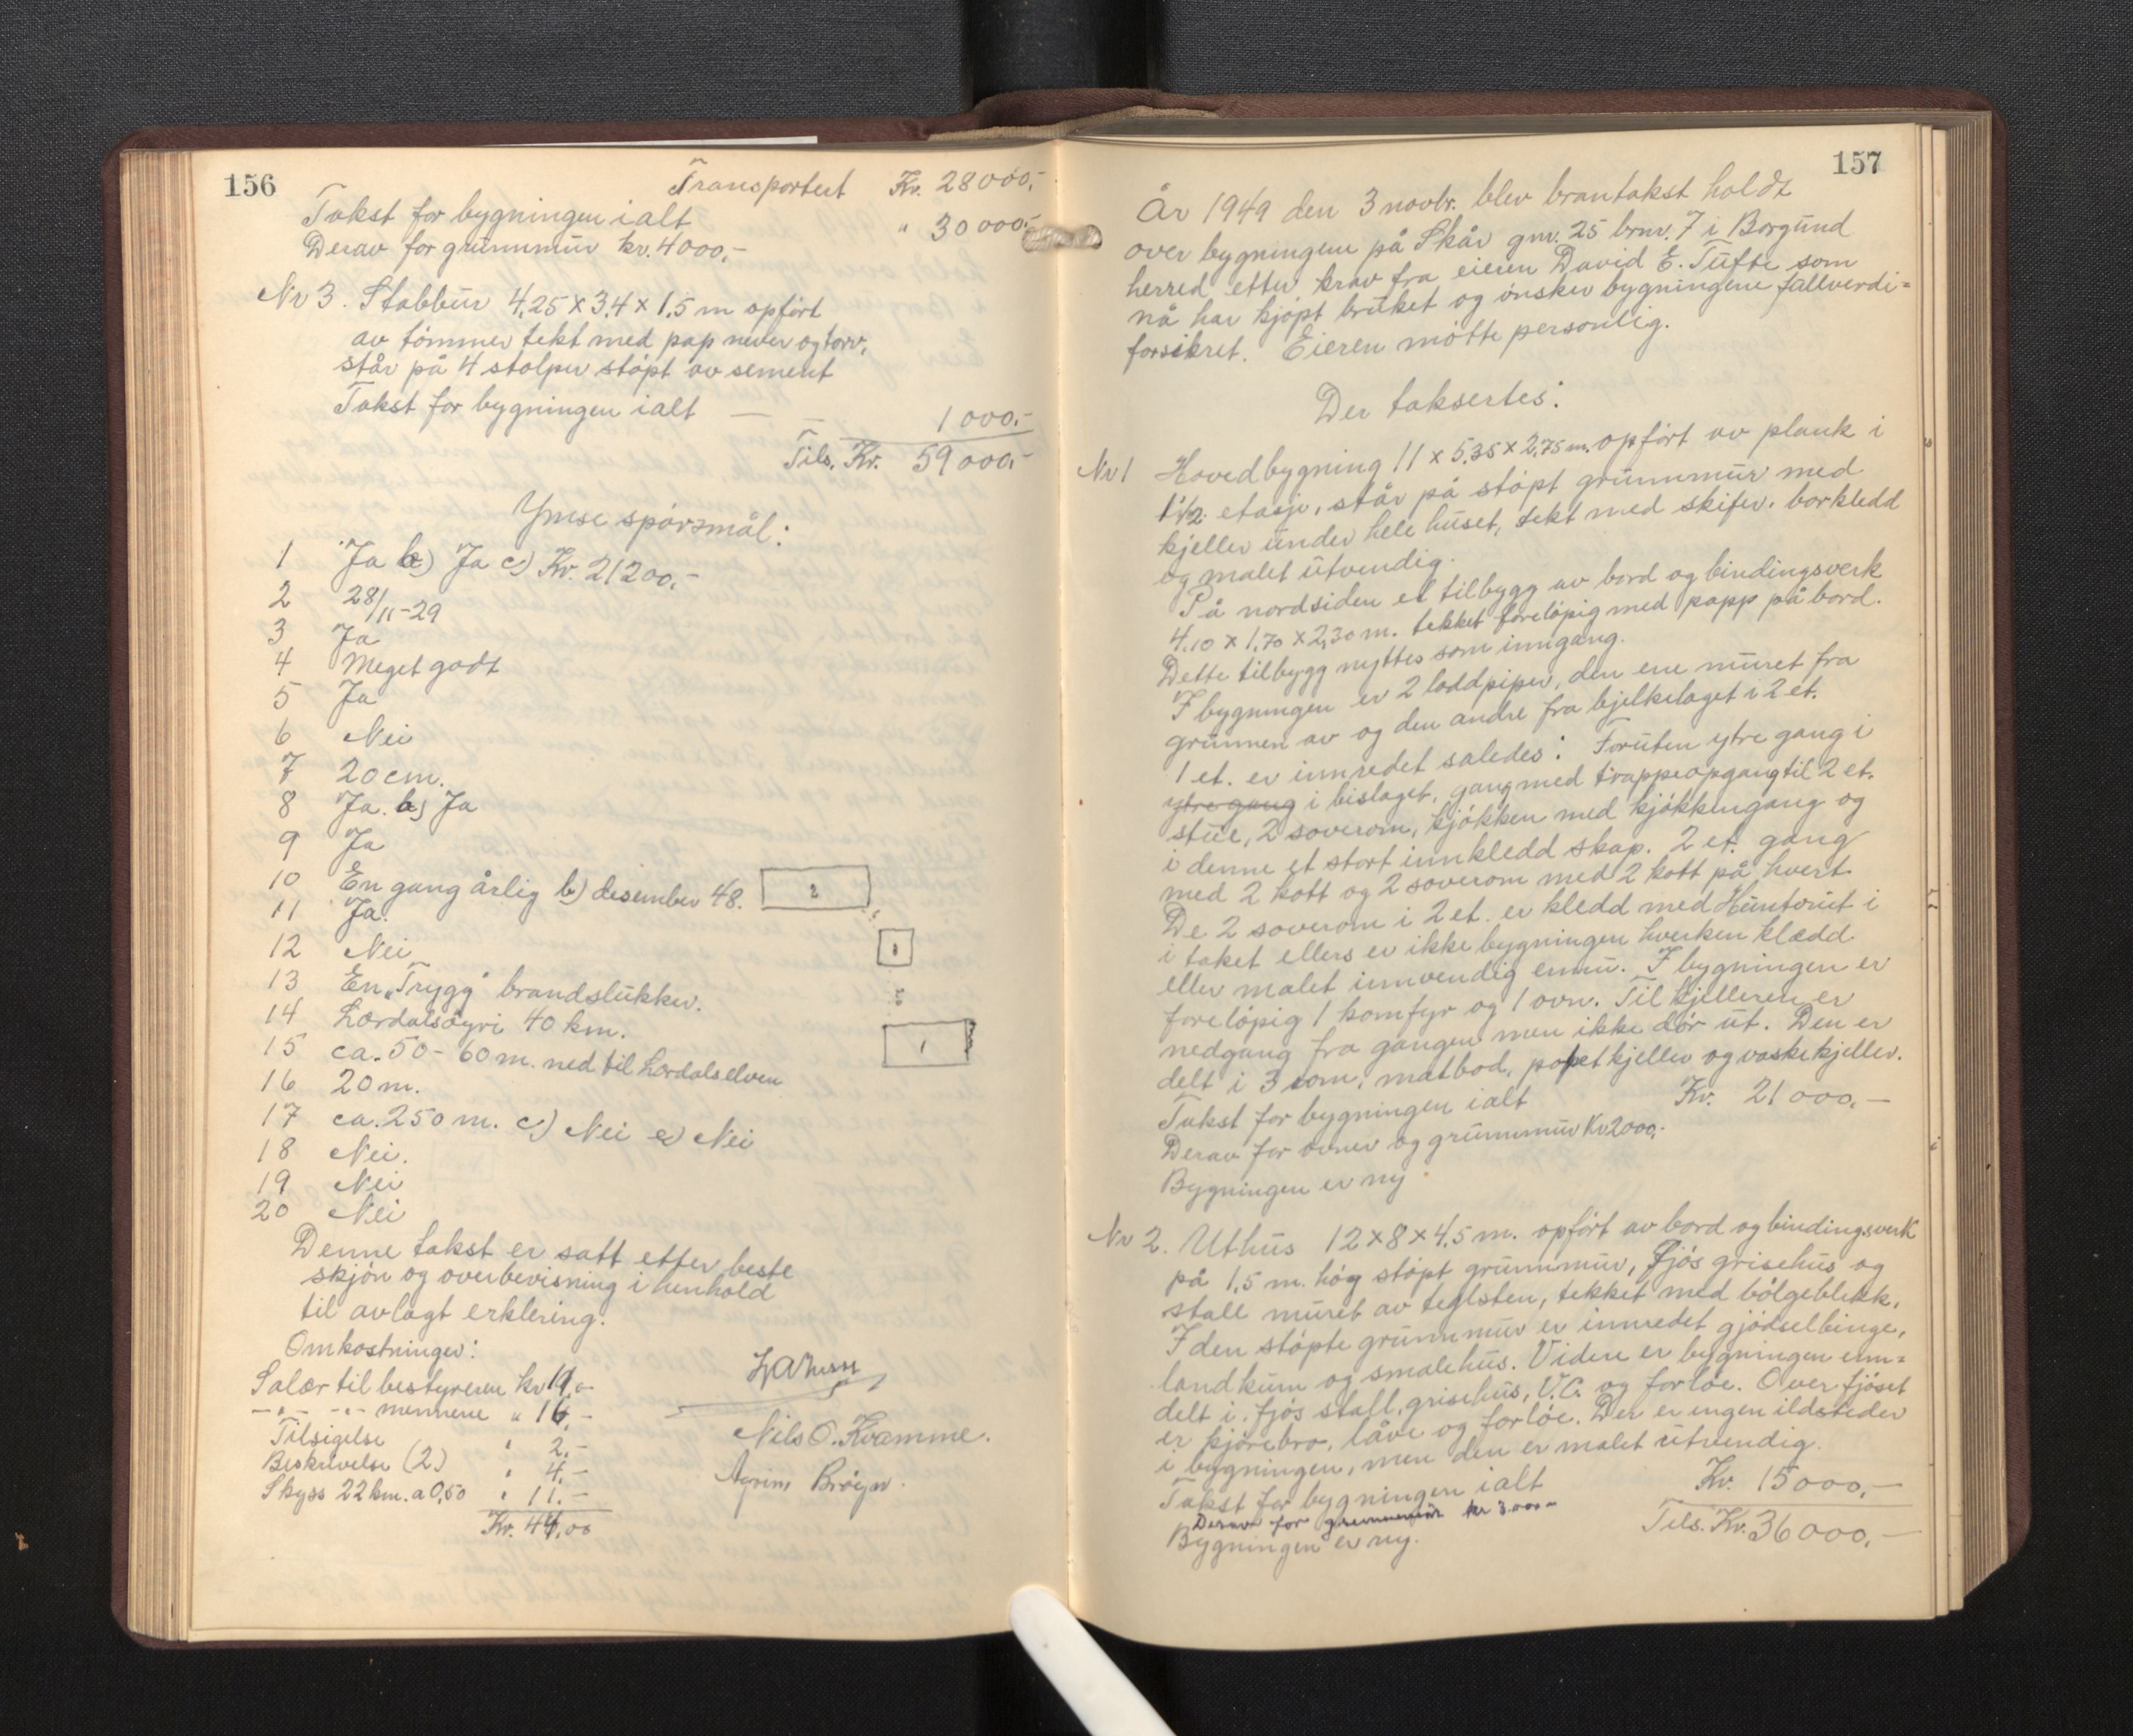 156
Transportert Kr. 28000,-
Takst for bygningen ialt " 30000,-
Derav for grunnmur kr. 4000,-
Nr 3. Stabbur 4,25 x 3,4 x 1,5 m opført
av tømmer tekt med pap never og torv,
står på 4 stolper støpt av sement
Takst for bygningen ialt — 1000,-
Tils. Kr. 59000,-
Ymse spørsmål:
1 Ja b) Ja c) Kr. 21200,-
2 28/11-29
3 Ja
4 Meget godt
5 Ja
6 Nei
7 20 cm.
8 Ja. b) Ja
9 Ja
10 En gang årlig b) desember 48.
11 Ja.
12 Nei
13 En „Trygg" brandslukker.
14 Lærdalsøyri 40 km.
15 ca. 50 - 60 m. ned til Lærdalselven
16 20 m.
17 ca. 250 m. c) Nei e) Nei
18 Nei.
19 Nei
20 Nei
2
1
1
Denne takst er satt etter beste
skjøn og overbevisning i henhold
til avlagt erklering.
Omkostninger:
Salær til bestyreren kr 19,-
-"- -"- mennene " 16,-
Tilsigelse " 2,-
Beskrivelse (2) " 4,-
Skyss 22 km. a 0,50 " 11,-
Kr. 44,00
Nils O. Kvamme.
157
År 1949 den 3 novbr. blev brantakst holdt
over bygningene på Skår gnr. 25 brnr. 7 i Borgund
herred etter krav fra eieren David E. Tufte som
nå har kjøpt bruket og ønsker bygningene fullverdi=
forsikret. Eieren møtte personlig.
Der taksertes:
Nr 1 Hovedbygning 11 x 5,35 x 2,75 m. opført av plank i
1 1/2 etasje, står på støpt grunnmur med
kjeller under hele huset, tekt med skifer. borkledd
og malet utvendig.
På nordsiden et tilbygg av bord og bindingsverk
4,10 x 1,70 x 2,30 m. tekket foreløpig med papp på bord.
Dette tilbygg nyttes som inngang.
I bygningen er 2 loddpiper, den ene muret fra
grunnen av og den andre fra bjelkelaget i 2 et.
1 et. er innredet saledes: Foruten ytre gang i
ytre gang i bislaget, gang med trappeopgang til 2 et.
stue, 2 soverom, kjøkken med kjøkkengang og
i denne et stort innkledd skap. 2 et. gang
med 2 kott og 2 soverom med 2 kott på hvert.
De 2 soverom i 2 et. er kledd med Huntonit i
i taket ellers er ikke bygningen hverken klædd
eller malet innvendig ennu. I bygningen er
foreløpig 1 komfyr og 1 ovn. Til kjelleren er
nedgang fra gangen men ikke dør ut. Den er
delt i 3 rom, matbod, potetkjeller og vaskekjeller.
Takst for bygningen ialt Kr. 21000,-
Derav for ovner og grunnmur Kr 2000,-
Bygningen er ny
Nr 2. Uthus 12 x 8 x 4,5 m. opført av bord og bindingsverk
på 1,5 m. høg støpt grunnmur, fjøs grisehus og
stall muret av teglsten, tekket med bølgeblekk,
I den støpte grunnmur er innredet gjødselbinge,
landkum og smalehus. Videre er bygningen inn=
delt i. fjøs stall, grisehus, V.C. og forløe. Over fjøset
er kjørebro, låve og forløe. Der er ingen ildsteder
i bygningen, men den er malet utvendig.
Takst for bygningen ialt Kr. 15000,-
Derav for grunnmur kr 3000-
Bygningen er ny. Tils. Kr. 36000,-